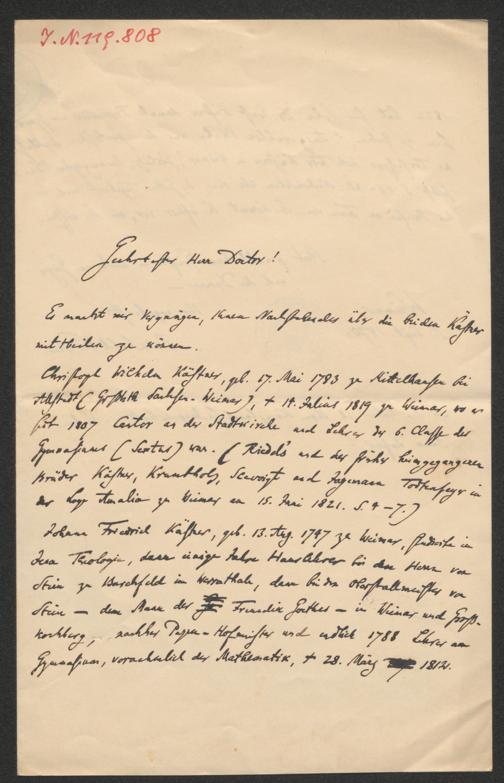 I.N.119.808
Geehrtester Herr Doctor!
Es macht mir Vergnügen, Ihnen Nachstehendes über die beiden Kästner
mittheilen zu können.
Christoph Wilhelm Kästner, geb. 17. Mai 1783 zu Mittelhausen bei
Allstedt (Großhth. Sachsen-Weimar), † 14. Julius 1819 zu Weimar, wo er
seit 1807 Cantor an der Stadtkirche und Lehrer der 6. Classe des
Gymnasiums (Sextus) war. (Riedel's und der früher heimgegangenen
Brüder Kästner, Krumbholz, und Jagemann Todtenfeyer in
der Loge Amalia zu Weimar am 15. Juni 1821. S. 4–7.)
Johann Friedrich Kästner, geb. 13. Aug. 1747 zu Weimar, studierte in
Jena Theologie, dann einige Jahre Hauslehrer bei dem Herrn von
Stein zu Barchfeld im Werrathale, dann bei dem Oberstallmeister von
Stein – dem Mann der Freundin Goethes – in Weimar und Groß-
kochberg, nachher Pagen-Hofmeister und endlich 1788 Lehrer am
Gymnasium, vornehmlich der Mathematik, † 28. März 1812.